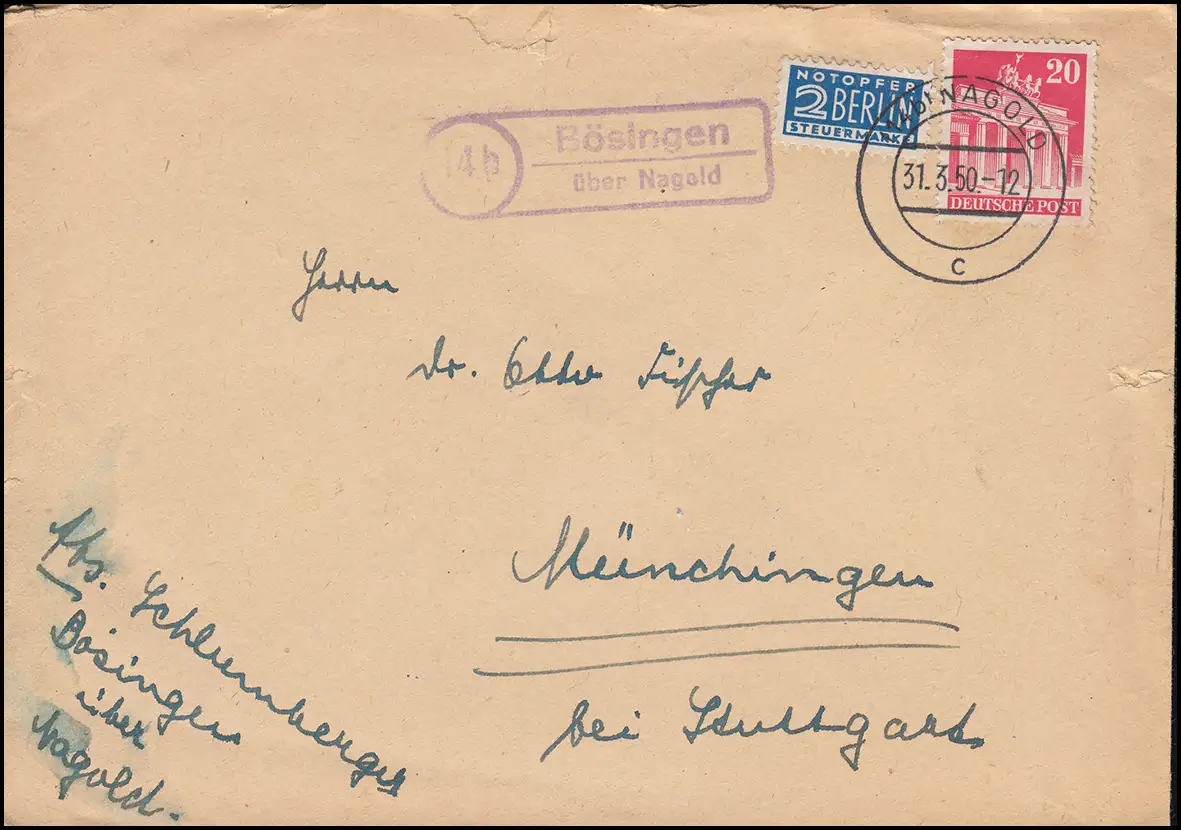 NOTOPFER
2 BERLIN
STEUERMARKE
20
DEUTSCHE POST
NAGOLD
31.3.50.-12
c
14b
Bösingen
über Nagold
Herrn
Dr. Otto Fischer
Münchingen
bei Stuttgart
Abs. Schlumberger
Bösingen
über
Nagold.